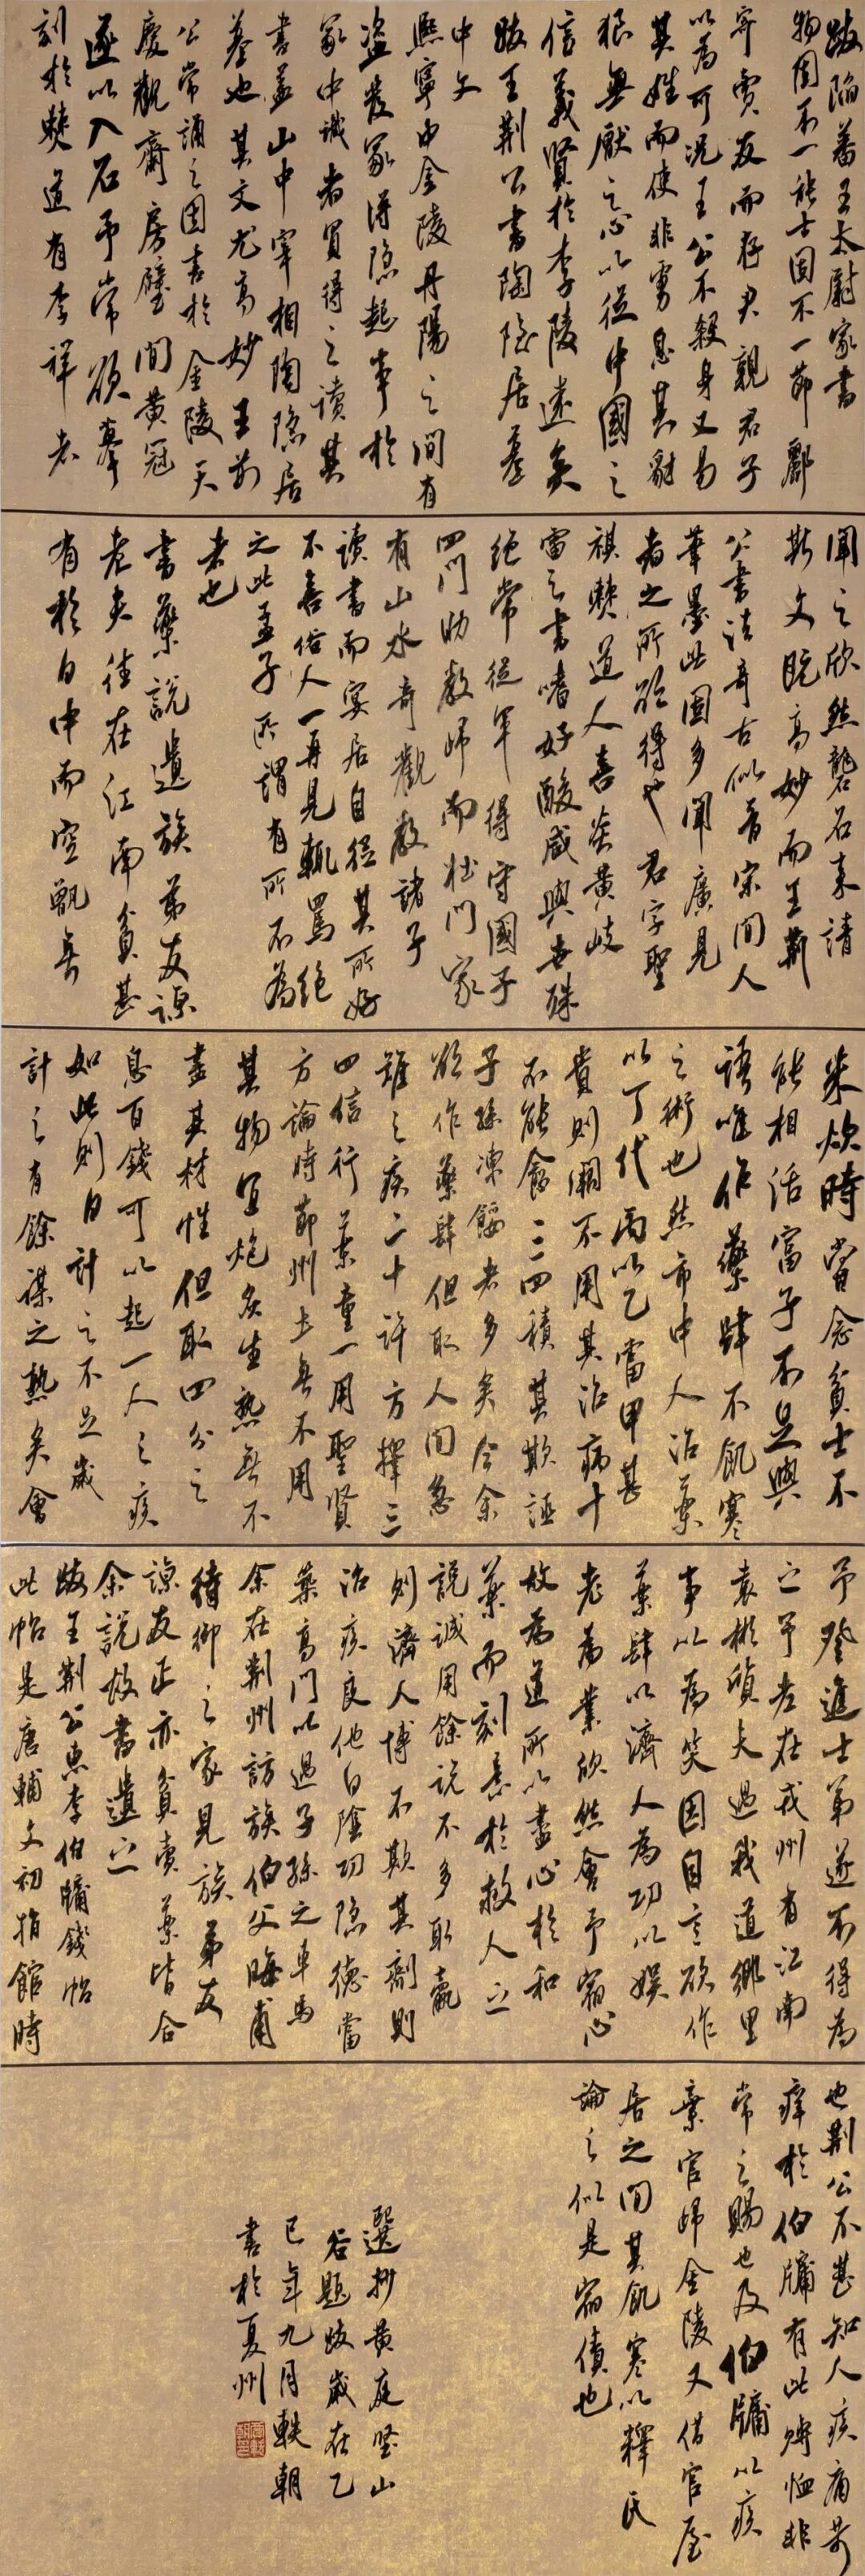 跋陷蕃王太尉家書
物固不一能士固不一節酈
寄賣友而存君親君子
以為可況王公不殺身又易
其姓而使非虜息其豺
狼無厭之心以從中國之
信義賢於李陵遠矣
跋王荊公書陶隱居墓
中文
熙寧中金陵丹陽之間有
盜發冢得隱起甎於
冢中識者買得之讀其
書蓋山中宰相陶隱居
墓也其文尤高妙王荊
公常誦之因書於金陵天
慶觀齋房壁間黃冠
遂以入石予常欲摹
刻於僰道有李祥者
聞之欣然礱石來請
斯文既高妙而王荊
公書法奇古似晉宋間人
筆墨此固多聞廣見
者之所欲得也君字聖
祺僰道人喜炎黃岐
雷之書嗜好酸咸與世殊
絕常從軍得守國子
四門助教歸而杜門家
有山水奇觀教諸子
讀書而宴居自從其所好
不喜俗人一再見輒罵絕
之此孟子所謂有所不為
者也
書藥說遺族弟友諒
老夫往在江南貧甚
有於日中而空甑無
米炊時嘗念貧士不
能相活富子不足與
語唯作藥肆不飢寒
之術也然市中人治藥
以丁代丙以乙當甲甚
貴則闕不用其治病十
不能愈三四積其欺誣
子孫凍餒者多矣今余
欲作藥肆但取人間急
難之疾二十許方擇三
四信行藥童一用聖賢
方論時節州土無不用
其物宜炮炙生熟無不
盡其材性但取四分之
息百錢可以起一人之疾
如此則日計之不足歲
計之有餘謀之熟矣會
予登進士第遂不得為
之予者在戎州有江南
袁彬質夫過我道鄉里
事以為笑因自言欲作
藥肆以濟人為功以娛
老為業欣然會予宿心
故為道所以盡心於和
藥而刻意於救人之
說誠用餘說不多取贏
則濟人博不欺其劑則
治疾良他日陰功隱德當
築高門以過子孫之車馬
余在荊州訪族伯父晦甫
侍御之家見族弟友
諒友正亦貧賣藥皆合
余說故書遺之
跋王荊公惠李伯牖錢帖
此帖是唐輔文初捐館時
也荊公不甚知人疾痛苛
癢於伯牖有此賻恤非
常之賜也及伯牖以疾
棄官歸金陵又借官屋
居之間其飢寒以釋氏
論之似是宿債也
選抄黃庭堅山
谷題跋歲在乙
巳年九月軼朝
書於夏州